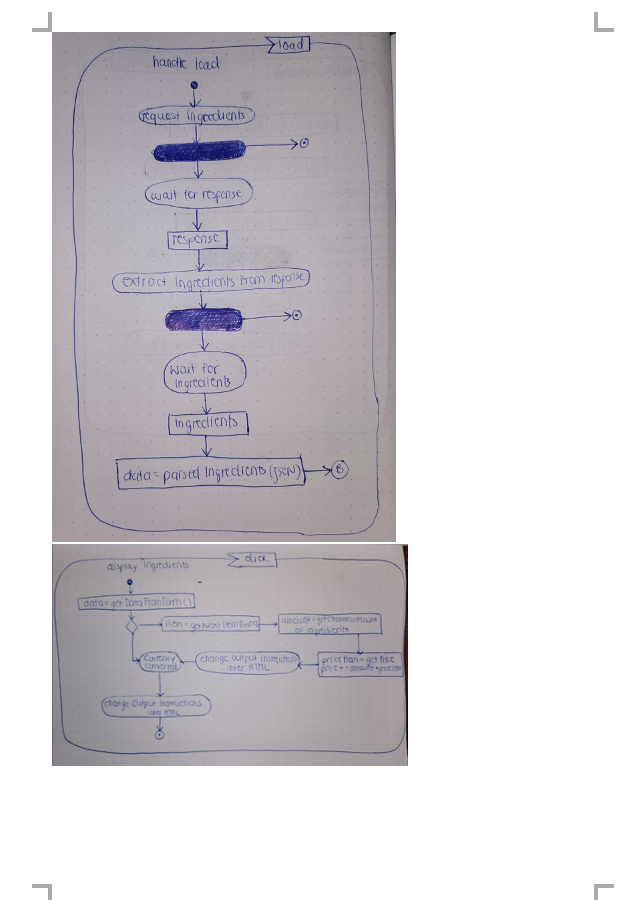 load
handle load
request ingredients
wait for response
response
extract ingredients from response
wait for
ingredients
ingredients
data = parsed ingredients (JSON)
B
click
display ingredients
data = getDataFromForm()
item = getNextItemData
amount =
of ingredients
price Item = get Price
price +
change Output Instruction
inner HTML
Currency
converted
change Output Instructions
inner HTML